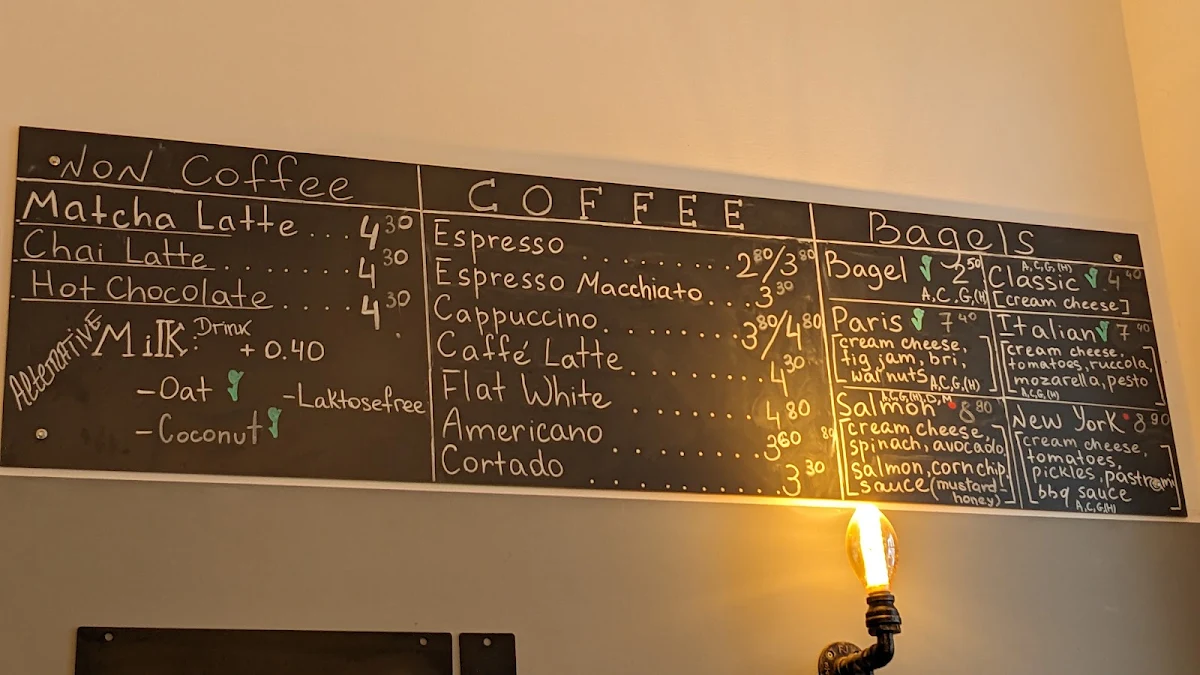 NON Coffee
Matcha Latte ... 4 30
Chai Latte ........ 4 30
Hot Chocolate .... 4 30
AltERNATIVE
MilK: Drink + 0.40
- Oat
- Laktosefree
- Coconut
COFFEE
Espresso ......... 2 80/3 80
Espresso Macchiato... 3 30
Cappuccino........ 3 80/4 80
Caffé Latte....... 4 30
Flat White ....... 4 80
Americano ....... 3 60
Cortado ......... 3 30
Bagels
Bagel 2 50
A,C,G,(H)
A,C,G,(H)
Classic 4 40
[cream cheese]
Paris 7 40
[cream cheese,
fig jam, bri,
walnuts]
A,C,G,(H)
Italian 7 40
[cream cheese,
tomatoes, ruccola,
mozarella, pesto]
A,C,G,(H)
A,C,G,(H),D,M
Salmon 8 80
[cream cheese,
spinach, avocado,
salmon, corn chip,
sauce (mustard-
honey)]
New York 8 90
[cream cheese,
tomatoes,
pickles, pastrami
bbq sauce]
A,C,G,(H)